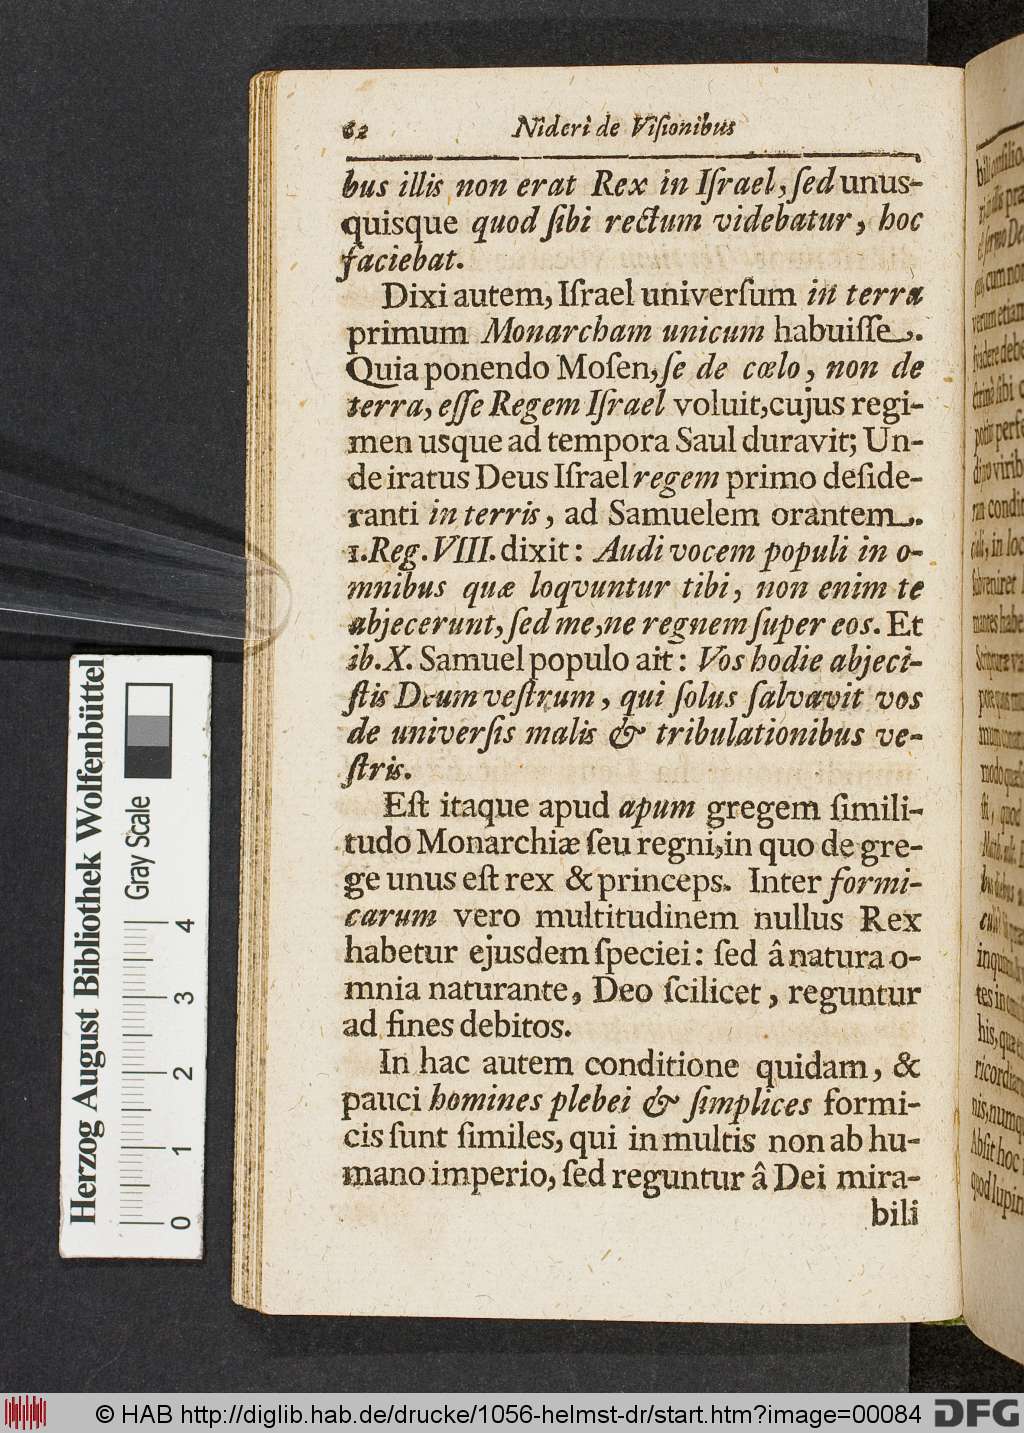 62 Nideri de Viſionibus
bus illis non erat Rex in Iſrael, ſed unus-
quisque quod ſibi rectum videbatur, hoc
faciebat.
Dixi autem, Iſrael univerſum in terra
primum Monarcham unicum habuiſſe.
Quia ponendo Moſen, ſe de cœlo, non de
terra, eſſe Regem Iſrael voluit, cujus regi-
men usque ad tempora Saul duravit; Un-
de iratus Deus Iſrael regem primo deſide-
ranti in terris, ad Samuelem orantem.
1. Reg. VIII. dixit: Audi vocem populi in o-
mnibus quæ loqvuntur tibi, non enim te
abjecerunt, ſed me, ne regnem ſuper eos. Et
ib. X. Samuel populo ait: Vos hodie abjeci-
ſtis Deum veſtrum, qui ſolus ſalvavit vos
de univerſis malis & tribulationibus ve-
ſtris.
Eſt itaque apud apum gregem ſimili-
tudo Monarchiæ ſeu regni, in quo de gre-
ge unus eſt rex & princeps. Inter formi-
carum vero multitudinem nullus Rex
habetur ejusdem ſpeciei: ſed â natura o-
mnia naturante, Deo ſcilicet, reguntur
ad fines debitos.
In hac autem conditione quidam, &
pauci homines plebei & ſimplices formi-
cis ſunt ſimiles, qui in multis non ab hu-
mano imperio, ſed reguntur â Dei mira-
bili
Herzog August Bibliothek Wolfenbüttel
Gray Scale
0 1 2 3 4
© HAB http://diglib.hab.de/drucke/1056-helmst-dr/start.htm?image=00084
DFG